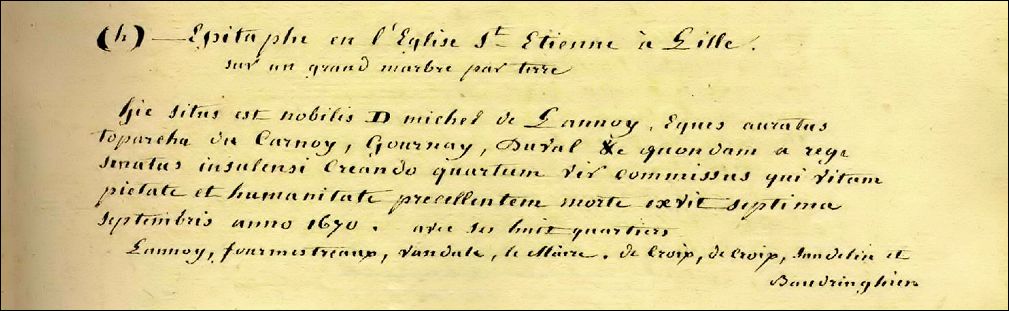 (h) — Epitaphe en l'Eglise St Etienne à Lille.
sur un grand marbre par terre
hic situs est nobilis D michel de Lannoy, Eques auratus
toparcha du Carnoy, Gournay, Duval &c quondam a rege
senatus insulensi Creando quartum vir commissus qui vitam
pietate et humanitate precellentem morte exvit septima
septembris anno 1670. avec ses huit quartiers
Lannoy, fourmestreaux, vandale, le Maire, de Croix, de Croix, Sandelin et
Baudringhien